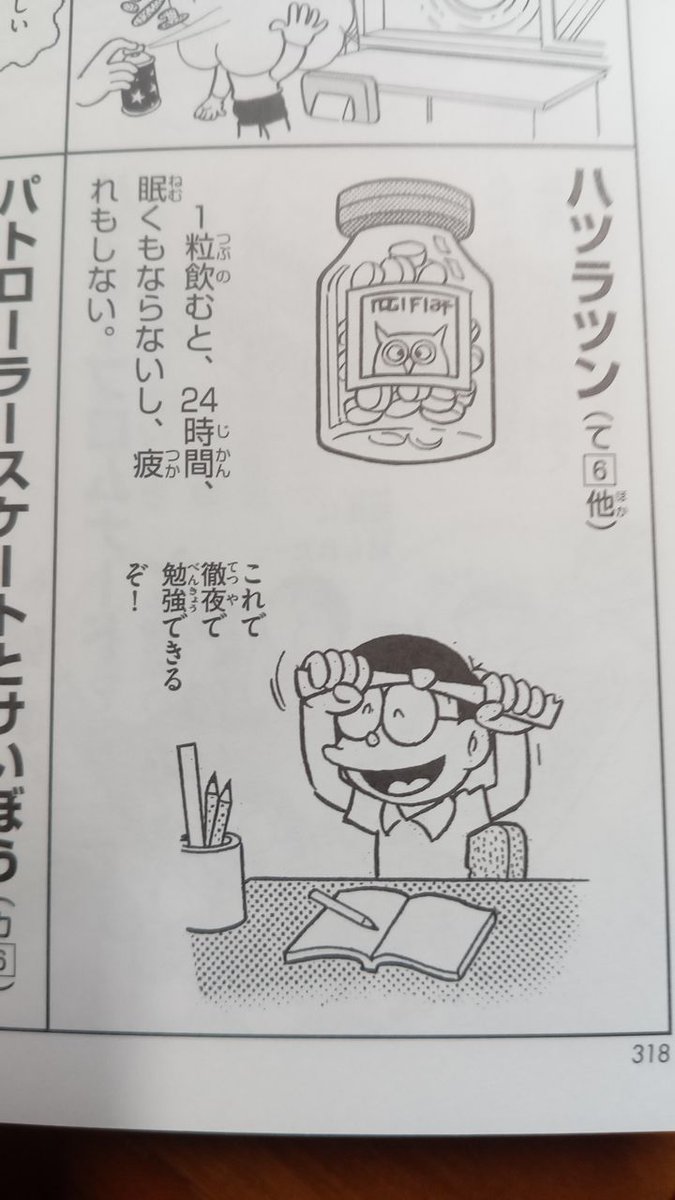 しい
ハツラツン(て6他)
1粒飲むと、24時間、
眠くもならないし、疲
れもしない。
これで
徹夜で
勉強できる
ぞ!
パトローラースケートとけいぼう(カ6)
318